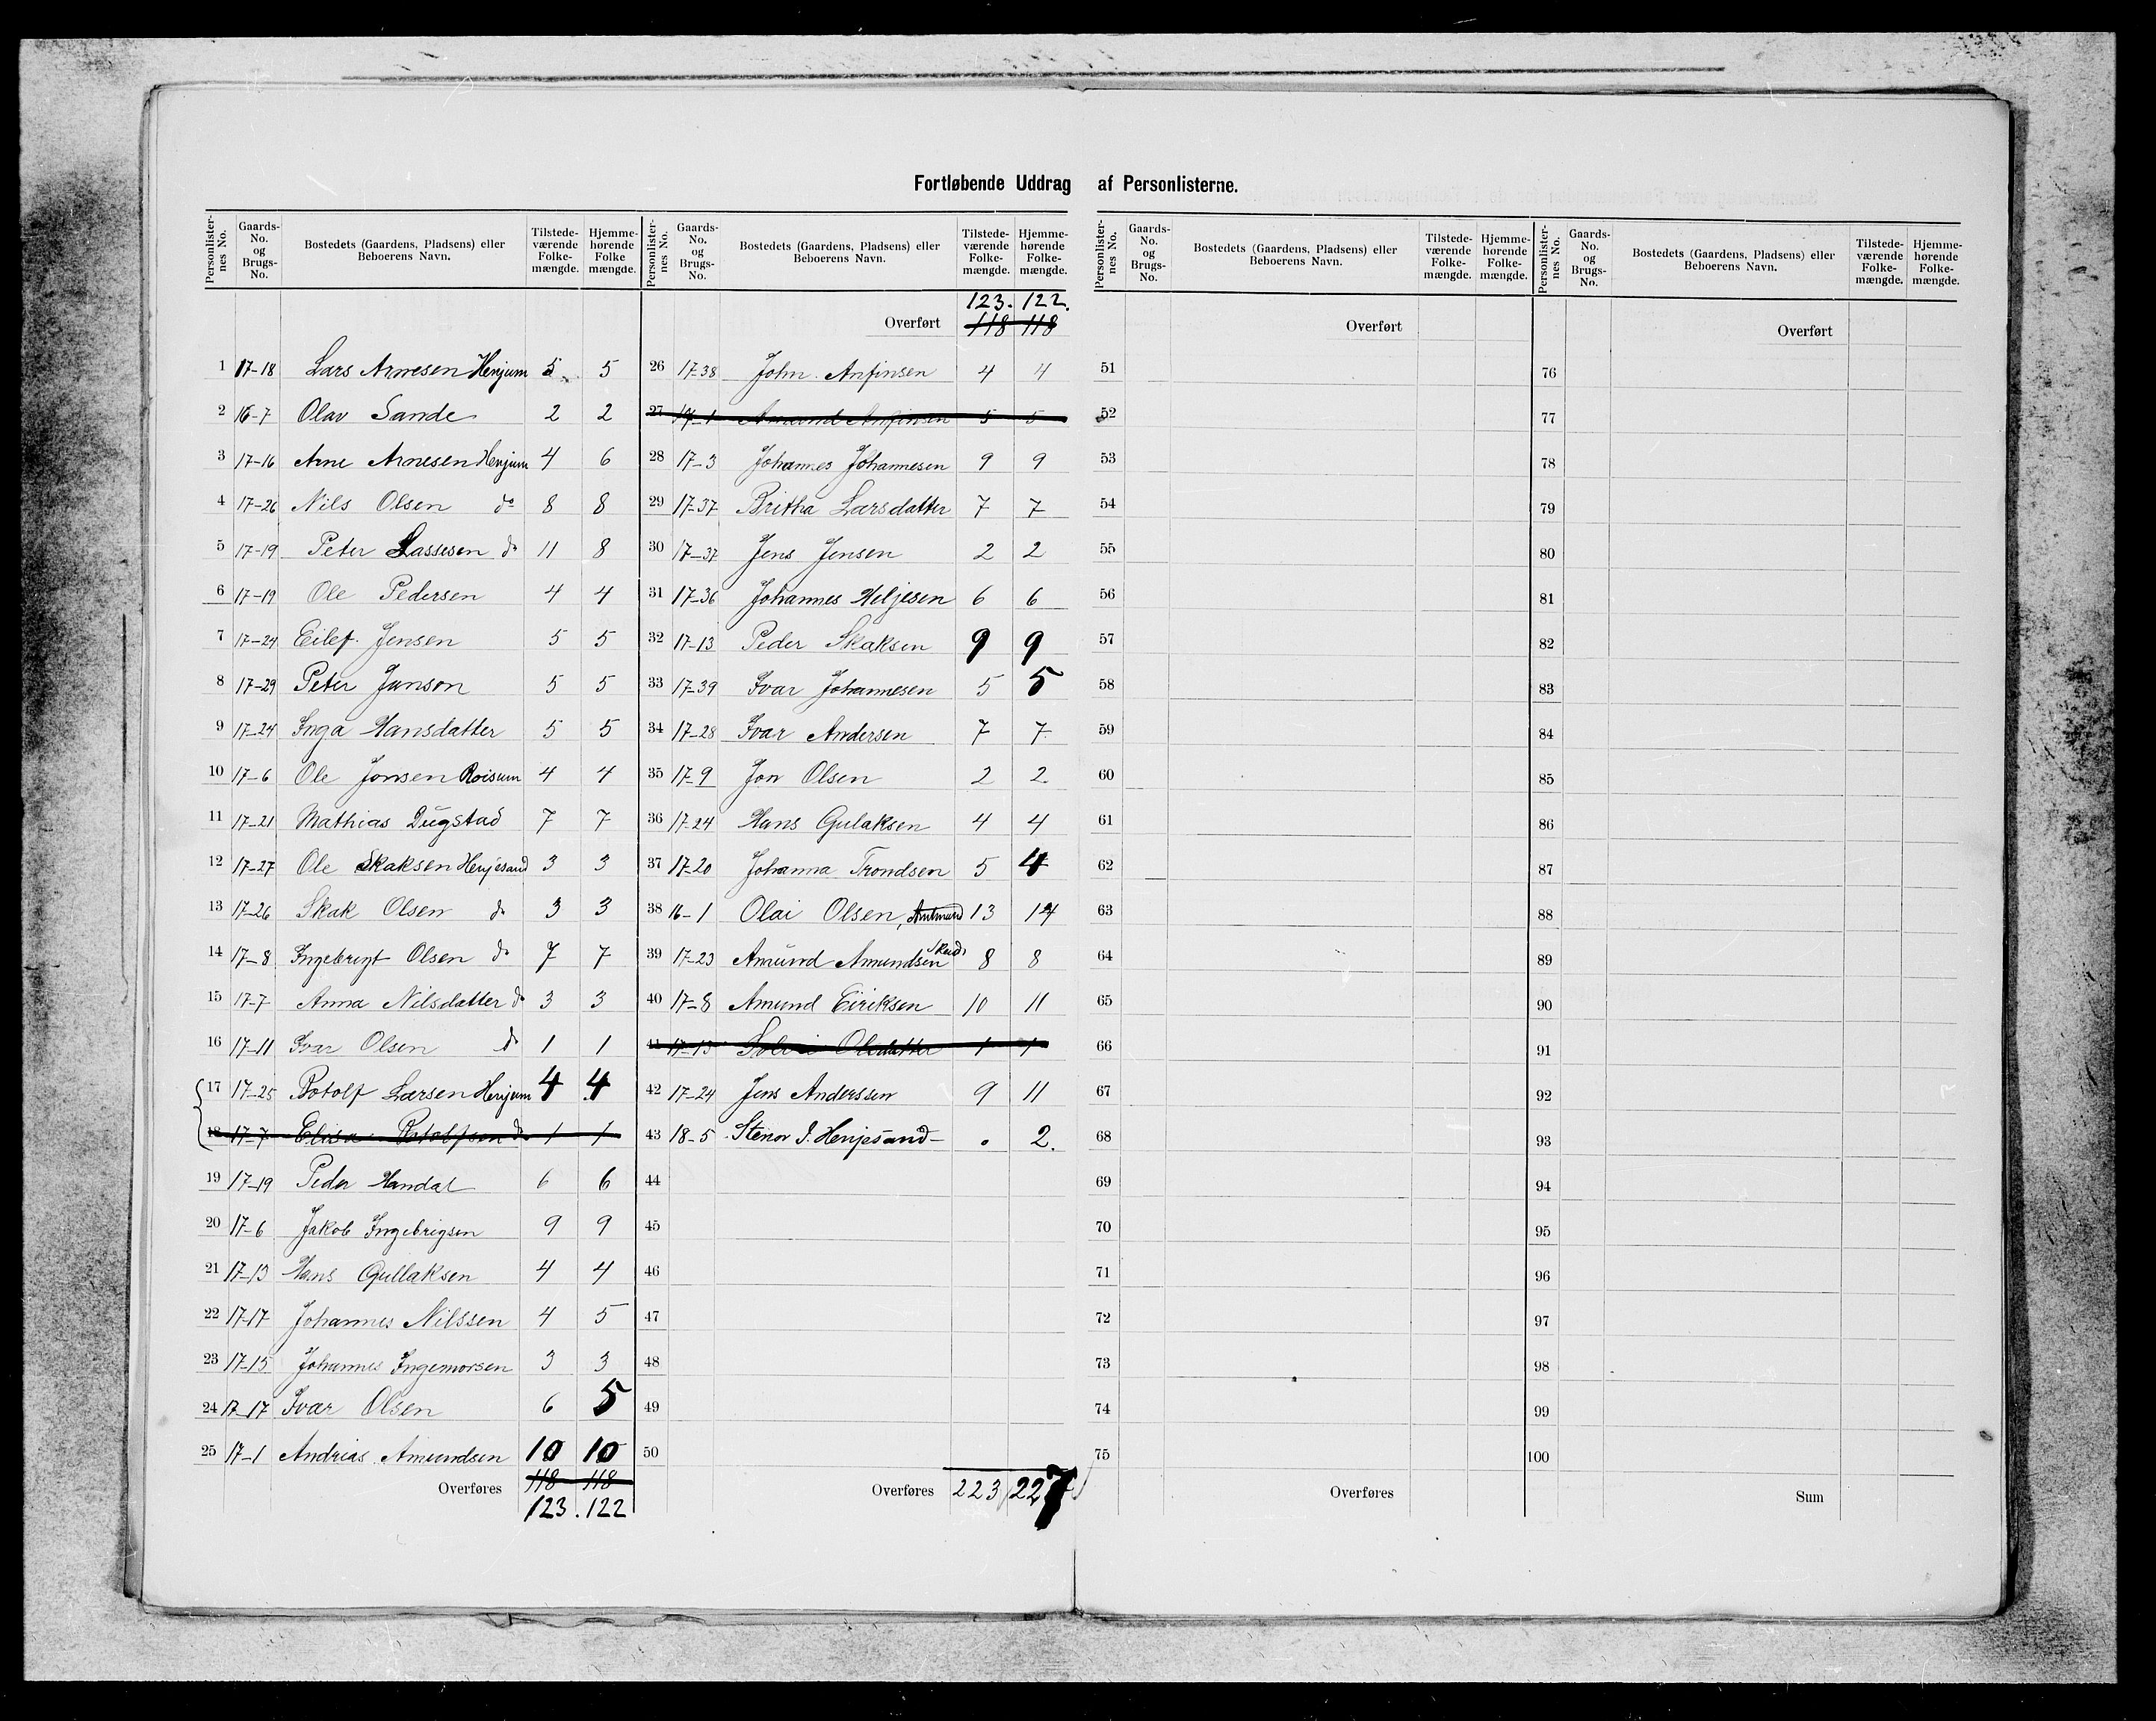 Fortløbende Uddrag af Personlisterne.
Personlister-nes No. | Gaards-No. og Brugs-No. | Bostedets (Gaardens, Pladsens) eller Beboerens Navn. | Tilstede-værende Folke-mængde. | Hjemme-hørende Folke mængde.
1 17-18 Lars Arnesen Henjum 5 5
2 16-7 Olav Sande 2 2
3 17-16 Arne Arnesen Henjum 4 6
4 17-26 Nils Olsen do 8 8
5 17-19 Peter Lassesen do 11 8
6 17-19 Ole Pedersen 4 4
7 17-24 Eilef Jensen 5 5
8 17-29 Peter Janson 5 5
9 17-24 Inga Hansdatter 5 5
10 17-6 Ole Jonsen Roisum 4 4
11 17-21 Mathias Dugstad 7 7
12 17-27 Ole Skaksen Henjesand 3 3
13 17-26 Skak Olsen do 3 3
14 17-8 Ingebrigt Olsen do 7 7
15 17-7 Anna Nilsdatter do 3 3
16 17-11 Ivar Olsen do 1 1
17 17-25 Botolf Larsen Henjum 4 4
18 17-7 Elisa Botolfsen do 1 1
19 17-19 Peder Handal 6 6
20 17-6 Jakob Ingebrigsen 9 9
21 17-13 Hans Gullaksen 4 4
22 17-17 Johannes Nilssen 4 5
23 17-15 Johannes Ingemorsen 3 3
24 17-17 Ivar Olsen 6 5
25 17-1 Andrias Amundsen 10 10
118 118
Overføres
123. 122
Personlister-nes No. | Gaards-No. og Brugs-No. | Bostedets (Gaardens, Pladsens) eller Beboerens Navn. | Tilstede-værende Folke-mængde. | Hjemme-hørende Folke-mængde.
123. 122.
Overført 118 118
26 17-38 John Anfinsen 4 4
27 17-1 Amund Anfinsen 5 5
28 17-3 Johannes Johannesen 9 9
29 17-37 Britha Larsdatter 7 7
30 17-37 Jens Jensen 2 2
31 17-36 Johannes Heljesen 6 6
32 17-13 Peder Skaksen 9 9
33 17-39 Ivar Johannesen 5 5
34 17-28 Ivar Andersen 7 7
35 17-9 Jon Olsen 2 2
36 17-24 Hans Gulaksen 4 4
37 17-20 Johanna Trondsen 5 4
38 16-1 Olai Olsen, 13 14
39 17-23 Amund Amundsen 8 8
40 17-8 Amund Eiriksen 10 11
41 17-13 Olsdatter 1 1
42 17-24 Jens Anderssen 9 11
43 18-5 Stenor J. Henjesand - . 2.
44
45
46
47
48
49
50
Overføres 223 227
Personlister-nes No. | Gaards-No. og Brugs-No. | Bostedets (Gaardens, Pladsens) eller Beboerens Navn. | Tilstede-værende Folke-mængde. | Hjemme-hørende Folke-mængde.
Overført
51
52
53
54
55
56
57
58
59
60
61
62
63
64
65
66
67
68
69
70
71
72
73
74
75
Overføres
Personlister-nes No. | Gaards-No. og Brugs-No. | Bostedets (Gaardens, Pladsens) eller Beboerens Navn. | Tilstede-værende Folke-mængde. | Hjemme-hørende Folke-mængde.
Overført
76
77
78
79
80
81
82
83
84
85
86
87
88
89
90
91
92
93
94
95
96
97
98
99
100
Sum